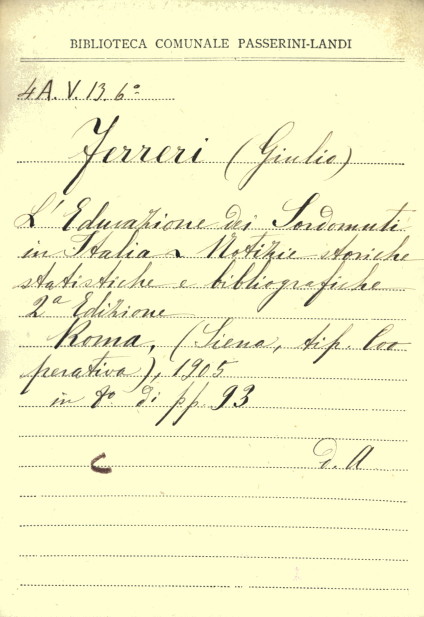 BIBLIOTECA COMUNALE PASSERINI-LANDI
4A. V. 13. 6º
Ferreri (Giulio)
L'Educazione dei Sordomuti
in Italia ~ Notizie storiche
statistiche e bibliografiche
2ª Edizione
Roma, (Siena, tip. Coo
perativa), 1905
in 8º di pp. 93
d. A
C